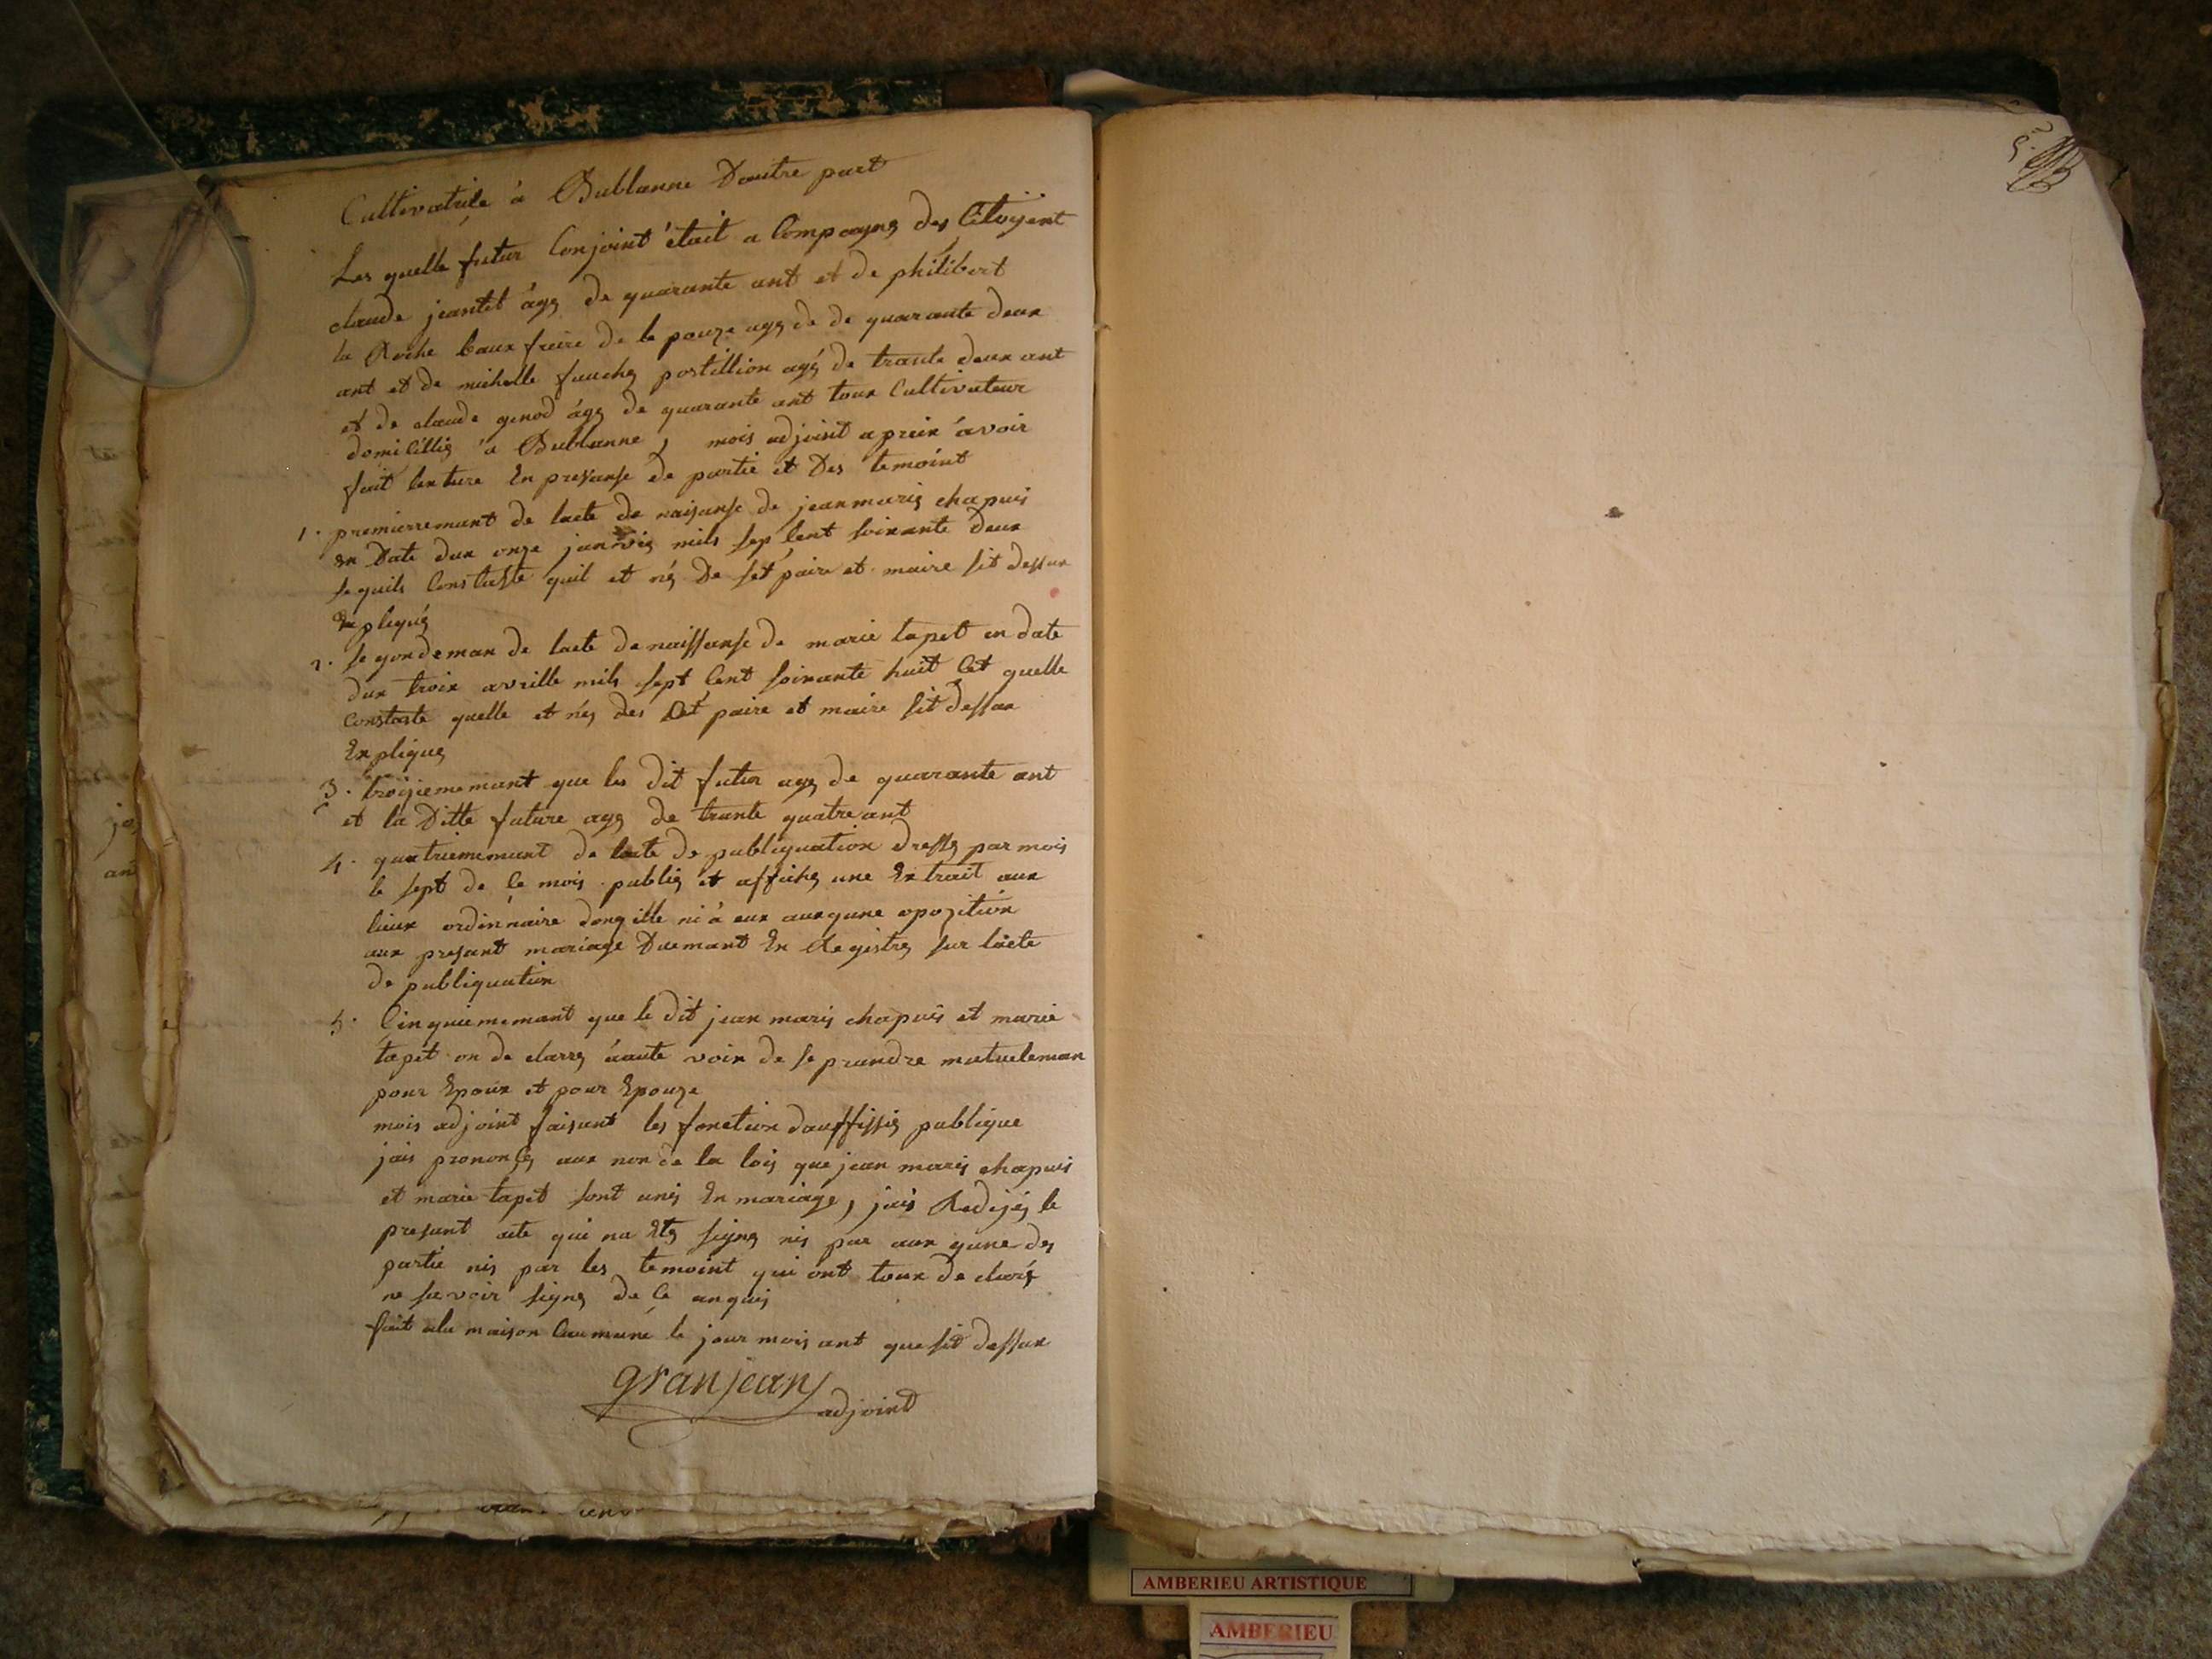 Cultivatrile à Bublanne Dautre part
Les quelle futur Conjoint était a Compagng des Citoyent
claude jeantet âgg de quarante ant et de philibert
la Roche baux freire de le pouze agg de de quarante deux
ant et de michelle fauchg postillion agé de trante deux ant
et de claude genod âgg de quarante ant toux Cultivateur
domicillig à Bublanne, mois adjoint apreix avoir
fait lexture En presanse de partie et Des temoint
1. premierremant de lacte de naisanse de jeanmarig chapuis
En Date dux onze janvig mils sep Cent soixante deux
sequils Constaste quil et nég De set paire et maire sit dessux
Expliqué
2. segondeman de lacte de naissanse de marie tapet en date
dux troix avrille mils sept Cent soixante huit Cet quelle
Constaste quelle et nég des Cet paire et maire sit dessux
Expliqug
3. troiziememant que les dit futur agg de quarante ant
et la Ditte future agg de trante quatre ant
4. quatriememant de lacte de publiquation dressg par mois
le sept de Ce mois publig et affichg une Extrait aux
lieux ordinnaire dong ille ni à eux auxqune opozition
aux presant mariage Duemant En Registrg sur lacte
de publiquation
5. Cinquiememant que le dit jean marig chapuis et marie
tapet on de clarrg àaute voix de se prandre mutueleman
pour Epoux et pour Epouze
mois adjoint faisant les fonction dauffissig publique
jais prononsg aux non de la lois que jean marig chapuis
et marie tapet sont unig En mariage, jais Redijég le
presant acte qui na Etg signg nis par aux qune des
partie nis par les temoint qui ont toux de claré
ne savoir signg de Ce anquis
fait ala maison Caumune le jour mois ant que sit dessux
granjean
adjoint
5.
AMBERIEU ARTISTIQUE
AMBERIEU